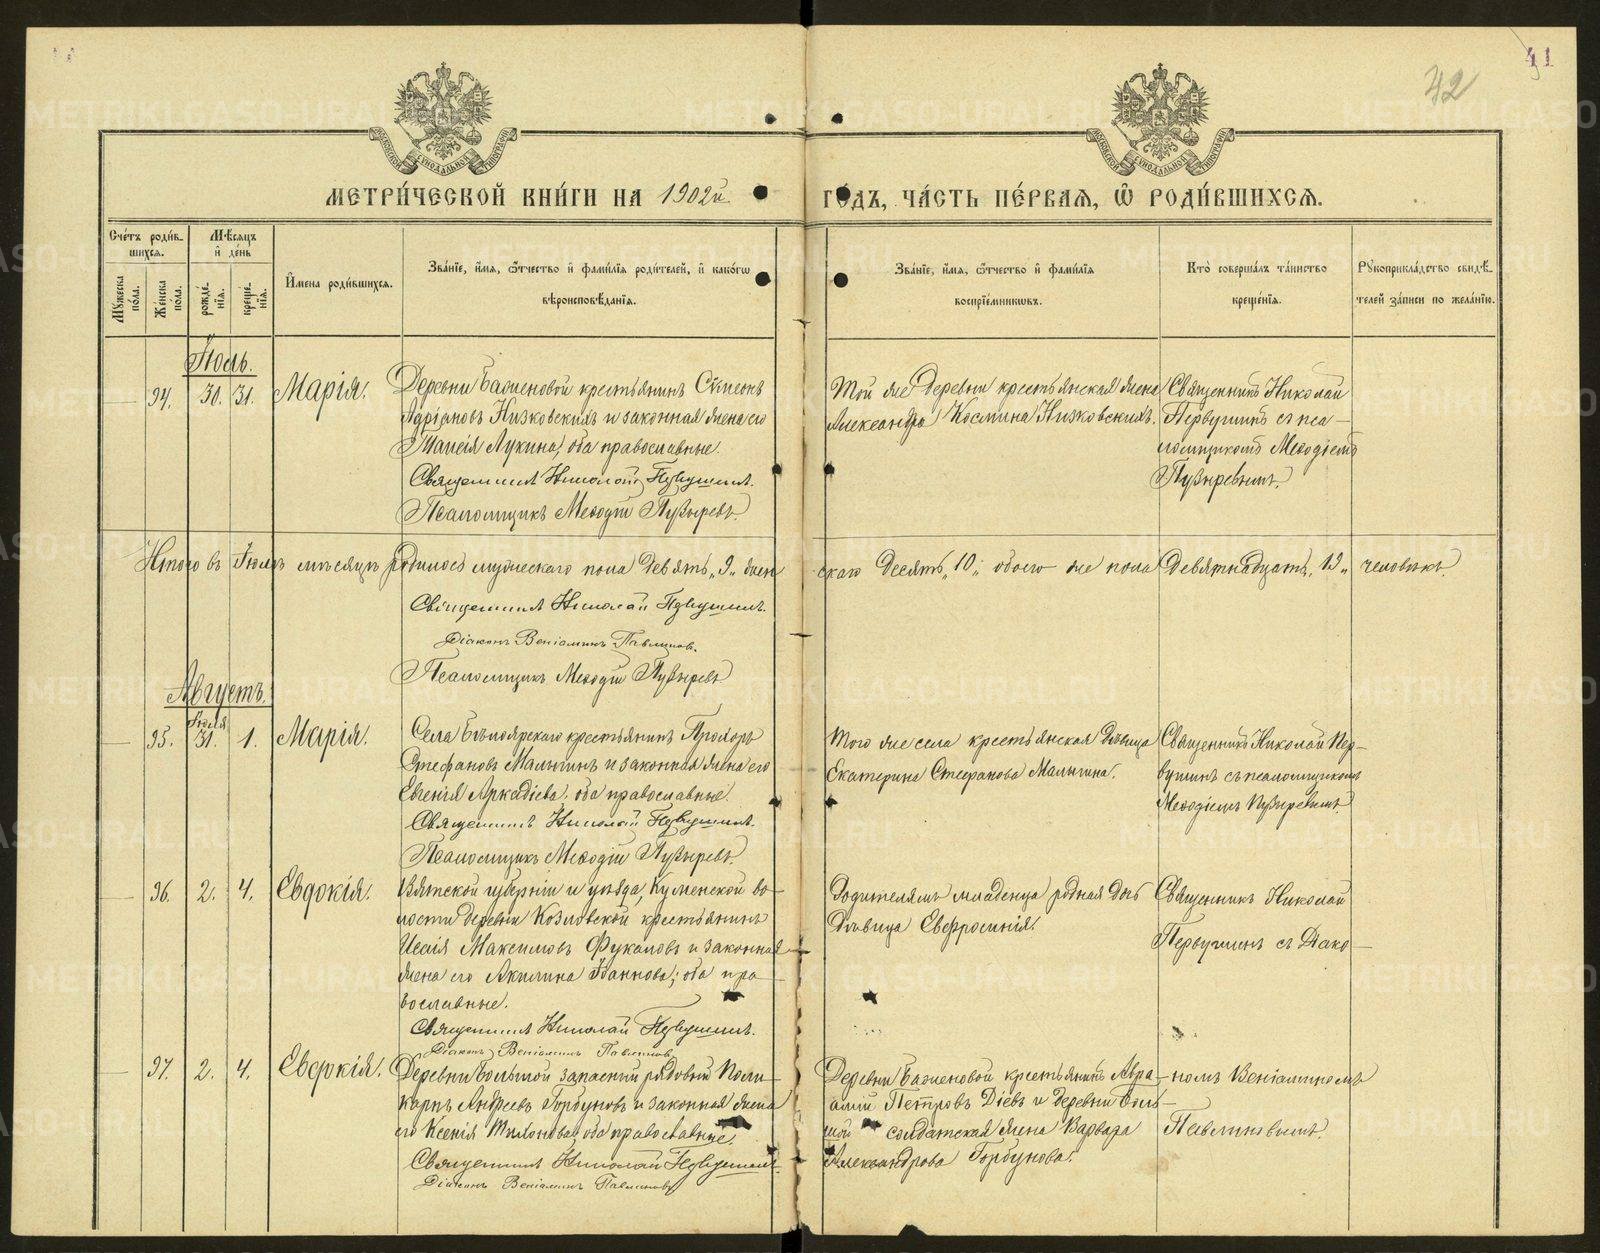 41
42
МЕТРИ́ЧЕСКОЙ КНИ́ГИ НА 1902й ГО́ДЪ, ЧА́СТЬ ПЕ́РВАЯ, Ѽ РОДИ́ВШИХСЯ.
Сче́тъ роди́вшихся.
Мѣ́сяцъ и де́нь
Му́жеска по́ла.
Же́нска по́ла.
рожде́нія.
креще́нія.
И́мена роди́вшихся.
Зва́ніе, и́мя, ѻ҆́тчество и фами́лія роди́телей, и како́гѡ вѣроисповѣ́данія.
Зва́ніе, и́мя, ѻ҆́тчество и фами́лія воспріе́мниковъ.
Кто̀ соверша́лъ та́инство креще́нія.
Рꙋкоприкла́дство свидѣ́телей за́писи по жела́нію.
Іюль.
94. 30. 31. Марія.
Деревни Баженовой крестьянинъ Сѵмеонъ
Адріановъ Низковскихъ и законная жена его
Таисія Лукина, оба православные.
Священникъ Николай Первушинъ.
Псаломщикъ Меѳодій Пузыревъ.
Той же деревни крестьянская жена
Александра Космина Низковскихъ.
Священникъ Николай
Первушинъ съ пса-
ломщикомъ Меѳодіемъ
Пузыревымъ.
Итого въ Іюлѣ мѣсяцѣ родилось мужескаго пола девять „9„ жен
скаго десять „10„ обоего же пола девятнадцать „19„ человѣкъ.
Священникъ Николай Первушинъ.
Діаконъ Веніаминъ Павлиновъ.
Псаломщикъ Меѳодій Пузыревъ
Августъ.
95. Іюля 31. 1. Марія.
Села Бѣлоярскаго крестьянинъ Прохоръ
Стефановъ Малыгинъ и законная жена его
Евгенія Аркадіева, оба православные.
Священникъ Николай Первушинъ.
Псаломщикъ Меѳодій Пузыревъ.
Того же села крестьянская дѣвица
Екатерина Стефанова Малыгина.
Священникъ Николай Пер-
вушинъ съ псаломщикомъ
Меѳодіемъ Пузыревымъ.
96. 2. 4. Евдокія.
Вятской губерніи и уѣзда, Куменской во-
лости деревни Козловской крестьянинъ
Исаія Максимовъ Фукаловъ и законная
жена его Акилина Іоаннова; оба пра-
вославные.
Священникъ Николай Первушинъ.
Діаконъ Веніаминъ Павлиновъ
Родителямъ младенца родная дочь
дѣвица Евфросинія.
Священникъ Николай
Первушинъ съ Діако-
97. 2. 4. Евдокія.
Деревни Большой запасный рядовый Поли-
карпъ Андреевъ Горбуновъ и законная жена
его Ксенія Тихонова, оба православные.
Священникъ Николай Первушинъ.
Діаконъ Веніаминъ Павлиновъ
Деревни Баженовой крестьянинъ Авра-
амій Петровъ Діевъ и деревни Боль-
шой солдатская жена Варвара
Александрова Горбунова.
номъ Веніаминомъ
Павлиновымъ.
METRIKI.GASO-URAL.RU